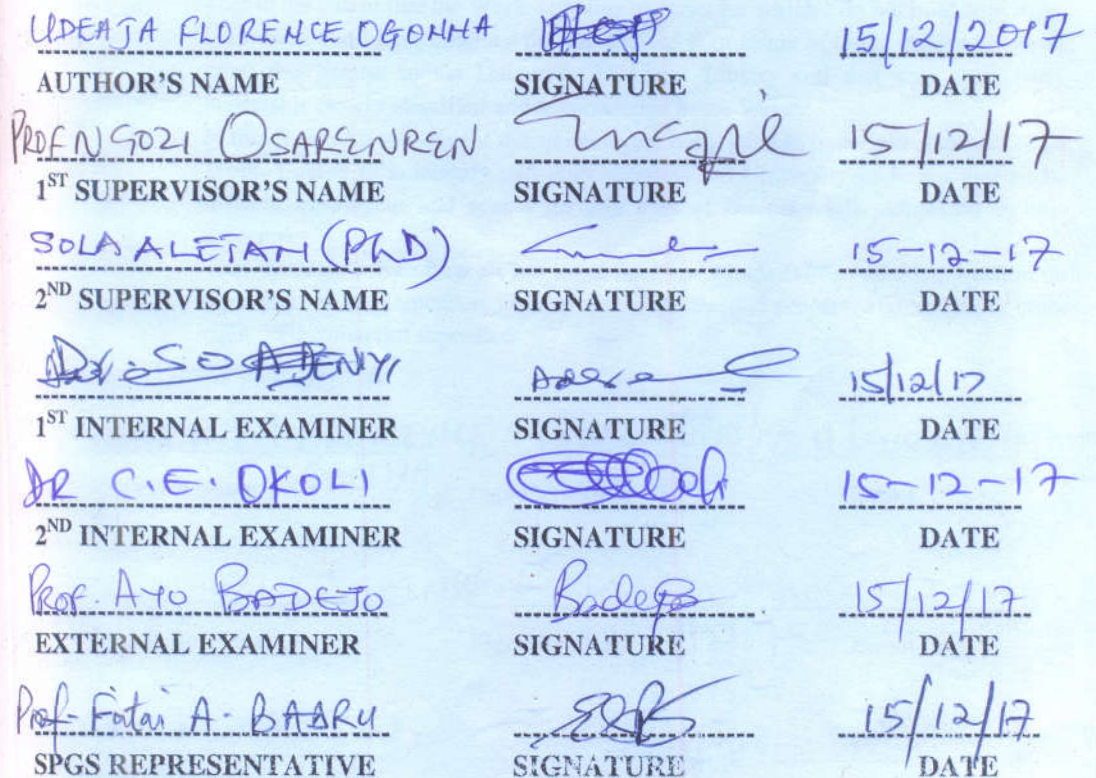 UDEAJA FLORENCE OGONNA 15/12/2017
AUTHOR'S NAME SIGNATURE DATE
PROF NGOZI OSARENREN 15/12/17
1ST SUPERVISOR'S NAME SIGNATURE DATE
SOLA ALETAN (PhD) 15-12-17
2ND SUPERVISOR'S NAME SIGNATURE DATE
Dr. SO ADENIYI 15/12/17
1ST INTERNAL EXAMINER SIGNATURE DATE
DR C.E. OKOLI 15-12-17
2ND INTERNAL EXAMINER SIGNATURE DATE
PROF. AYO BADEJO Badejo 15/12/17
EXTERNAL EXAMINER SIGNATURE DATE
Prof. Fatai A. BADRU 15/12/17
SPGS REPRESENTATIVE SIGNATURE DATE